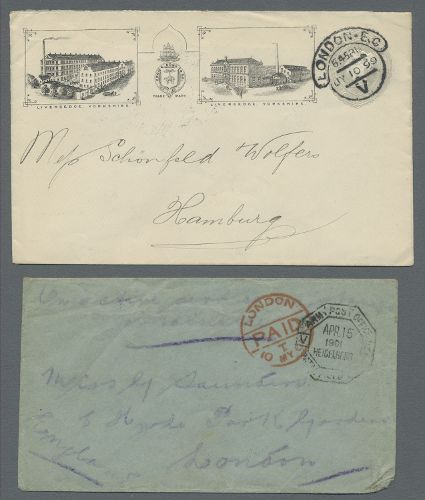 LIVERSEDGE YORKSHIRE.
TRADE MARK
LIVERSEDGE YORKSHIRE.
LONDON·E.C
5.45PM
JY 10 99
V
Mess Schönfeld Wolfers
Hamburg
On active
LONDON
PAID
T
10 MY
ARMY POST OFFICE
APR 15
1901
HEIDELBERG
Miss
Hyde Park Gardens
London
England